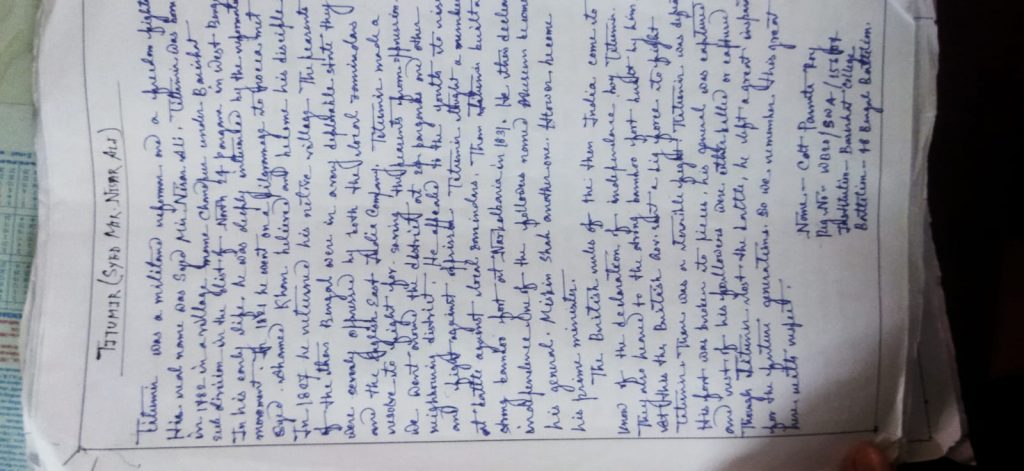 TITUMIR (SYED MIR NISAR ALI)
Titumir was a militant reformer and a freedom fight
His real name was Syed Mir Nisar Ali. Titumir was born
in 1782 in a village name Chandpur under Basirhat
sub division in the dist of North 24 pargana in West Beng
In his early life, he was deeply influenced by the reformist
movement. In 1821 he went on a pilgrimage to mocca met
Syed Ahamed Khan belived and became his desciple
In 1827 he returned his native village. The peasants
of the then Bengal were in a very deplorable state they
were severely oppressed by both the local zamindars
and the English East India Company. Titumir made a
resolve to fight for saving the peasants from oppression.
He went around the district at 24 parganas and other
neighbouring district. He appealed to the youth to rise
and fight against. Titumir thught a number
at battle against local zamindars. Then Titumir built a
strong bamboo foot at Narkelbaria in 1831. He then declare
independence One of the followers named Musum become
his general. Meskin Shah another one. How ar become
his prime minister.
The British rules of the then India come to
know of the declaration of independence by Titumir.
They also heared to the strong bamboo fort built by him.
At the British a big force to fight
Titumir. There was a terrible fight. Titumir was
His foot was broken to pieces, his general was captured
and rest of his followers were other killed or captured
Though Titumir lost the battle, he left a great inspir
for the future generations. So we remember this great
hero with respect.
Name - Cdt- Paramita Roy
Reg No - WB20/SWA/
Institution - Barasat College
Battelion - Bengal Battelion.